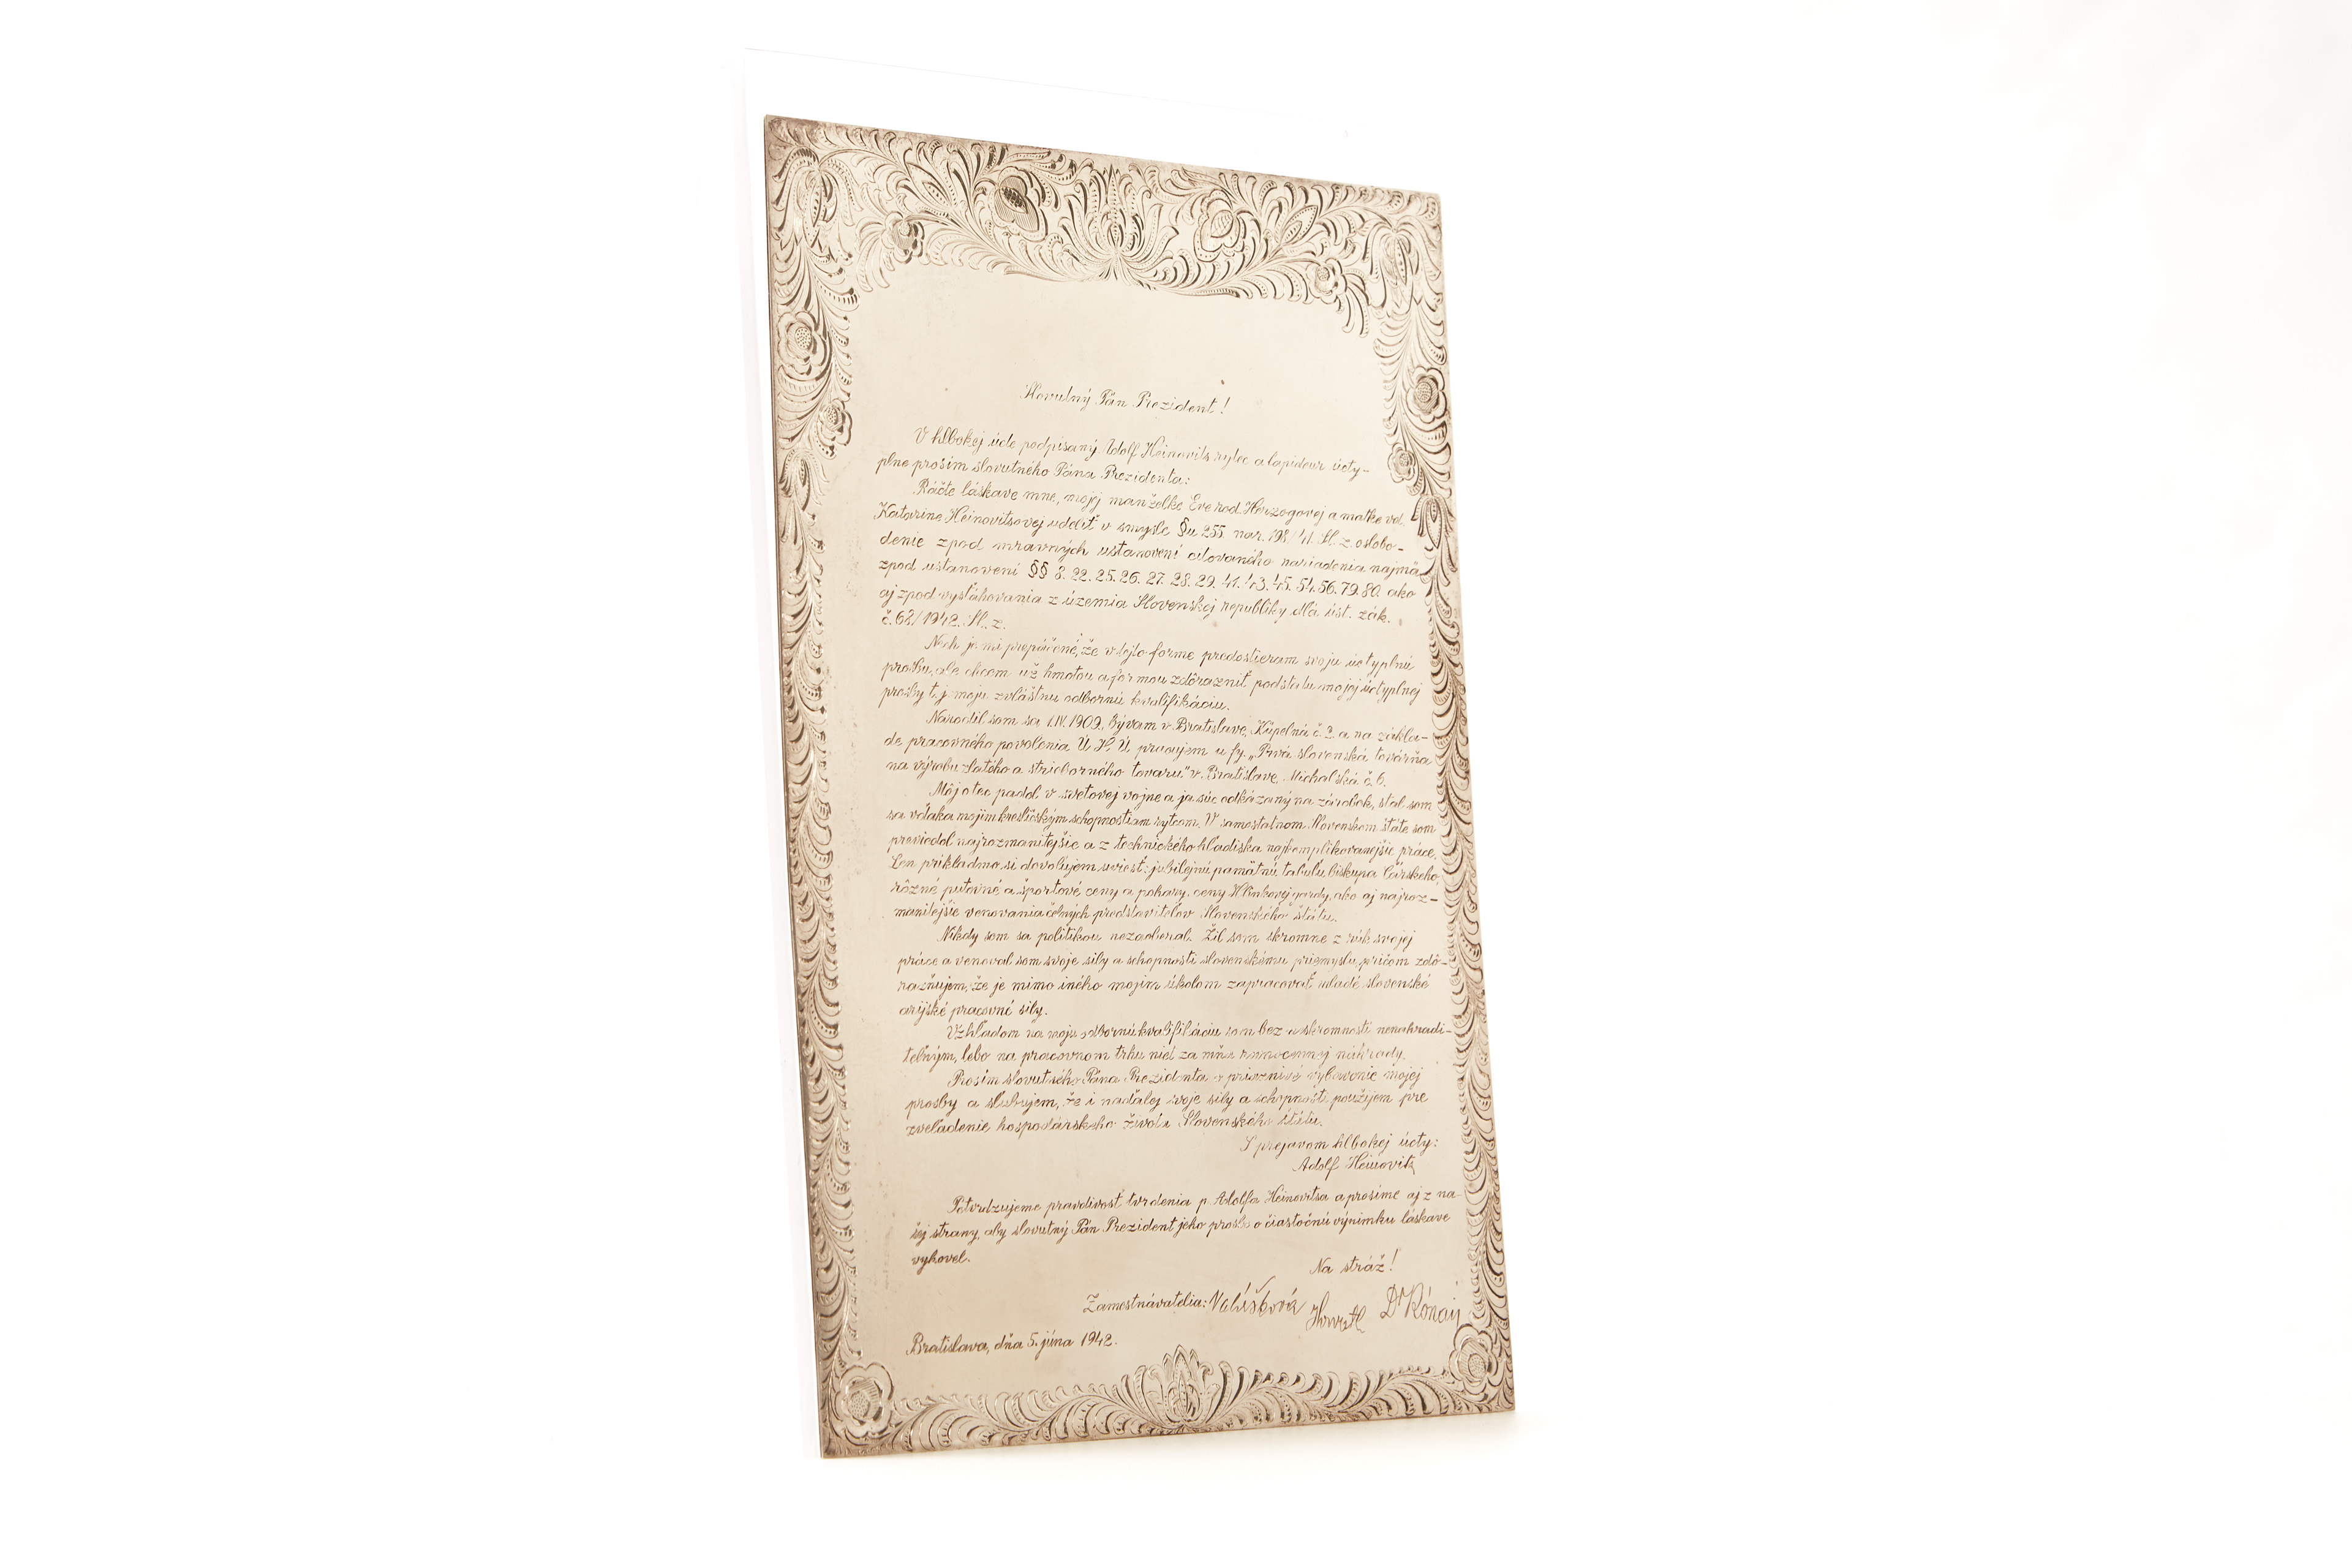 Slovutný Pán Prezident!
V hlbokej úcte podpísaný Adolf Heinovits rytec a lapideur úcty-
plne prosím slovutného Pána Prezidenta:
Ráčte láskave mne, mojej manželke Eve rod. Herzogovej a matke vd.
Kataríne Heinovitsovej udeliť v smysle §u 255 nar. 198/41. Sl. z. oslobo-
denie zpod mravných ustanovení citovaného nariadenia najmä
zpod ustanovení §§ 8. 22. 25. 26. 27. 28. 29. 41. 43. 45. 54. 56. 79. 80. ako
aj zpod vysťahovania z územia Slovenskej republiky dľa úst. zák.
č. 68/1942. Sl. z.
Nech je mi prepáčené, že v tejto forme predostieram svoju úctyplnú
prosbu, ale chcem už hmotou a formou zdôrazniť podstatu mojej úctyplnej
prosby t. j. moju zvláštnu odbornú kvalifikáciu.
Narodil som sa 1.IV. 1909. bývam v Bratislave, Kúpelná č. 2. a na zákla-
de pracovného povolenia Ú. H. Ú. pracujem u fy. „Prvá slovenská továrňa
na výrobu zlatého a strieborného tovaru" v Bratislave, Michalská č. 6.
Môj otec padol v svetovej vojne a ja súc odkázaný na zárobok, stal som
sa vďaka mojim kresličským schopnostiam rytcom. V samostatnom Slovenskom štáte som
previedol najrozmanitejšie a z technického hľadiska najkomplikovanejšie práce.
Len príkladmo si dovoľujem uviesť: jubilejnú pamätnú tabuľu biskupa Čárskeho,
rôzné putovné a športové ceny a pohary, ceny Hlinkovej gardy, ako aj najroz-
manitejšie venovania čelných predstaviteľov Slovenského štátu.
Nikdy som sa politikou nezaoberal. Žil som skromne z rúk svojej
práce a venoval som svoje sily a schopnosti slovenskému priemyslu, pričom zdô-
razňujem, že je mimo iného mojim úkolom zapracovať mladé slovenské
arijské pracovné sily.
Vzhľadom na moju odbornú kvalifikáciu som bez neskromnosti nenahradi-
teľným, lebo na pracovnom trhu niet za mňa rovnocennej náhrady.
Prosím slovutného Pána Prezidenta o priaznivé vybavenie mojej
prosby a sľubujem, že i naďalej svoje sily a schopnosti použijem pre
zveľadenie hospodárskeho života Slovenského štátu.
S prejavom hlbokej úcty:
Adolf Heinovits
Potvrdzujeme pravdivosť tvrdenia p. Adolfa Heinovitsa a prosíme aj z na-
šej strany, aby slovutný Pán Prezident jeho prosbu o čiastočnú výnimku láskave
vyhovel.
Na stráž!
Zamestnávatelia: Valúšková Dr Rónaij
Bratislava, dňa 5. júna 1942.